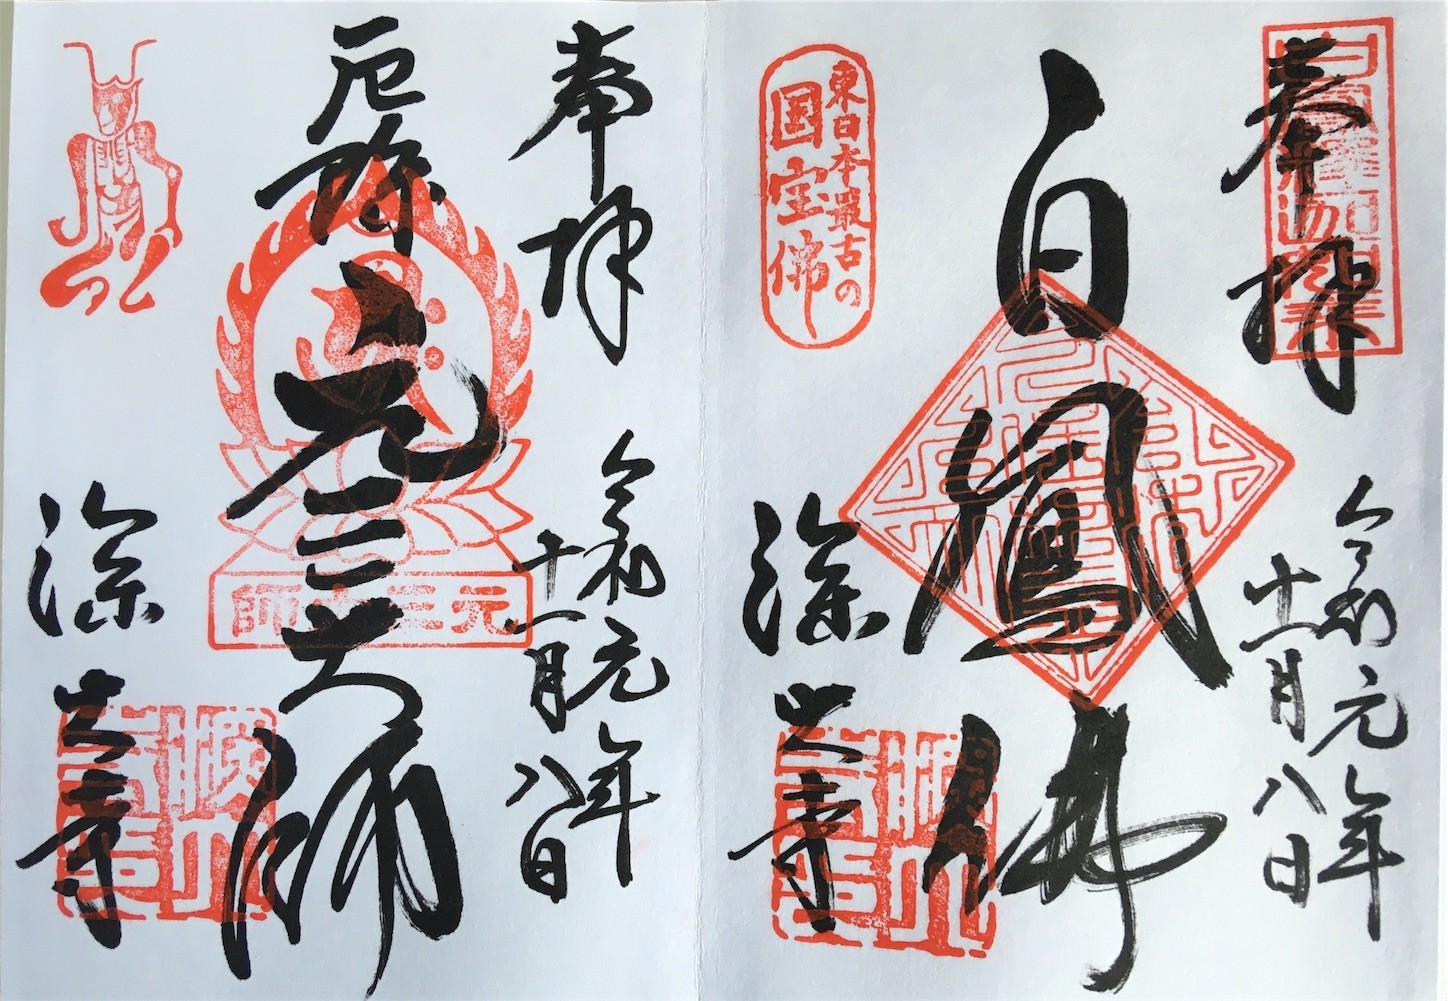 奉拝
令和元年
十一月八日
白鳳佛
東日本最古の
国宝佛
深大寺
奉拝
令和元年
十一月八日
厄除
元三大師
元三大師
深大寺